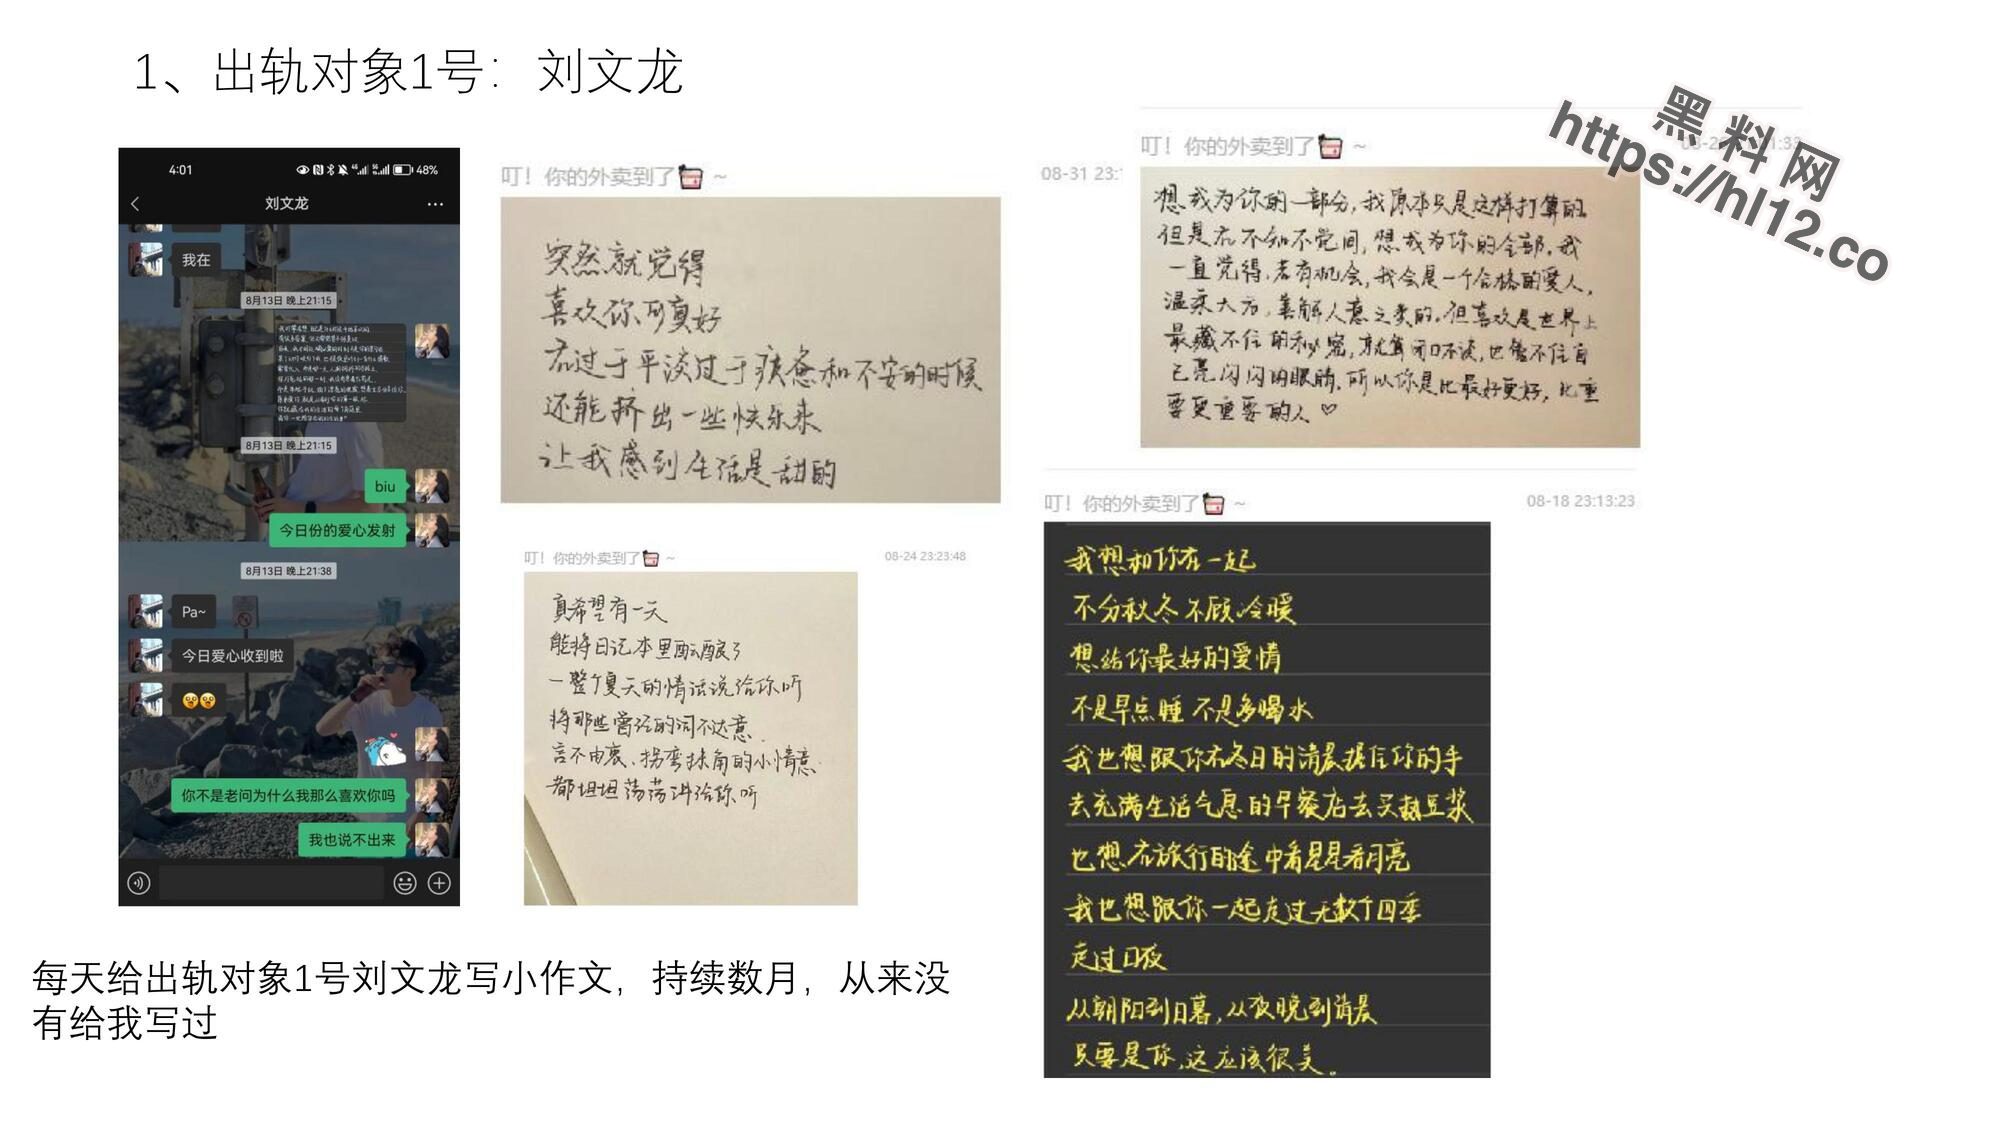 1、出轨对象1号：刘文龙
4:01
48%
刘文龙
我在
8月13日 晚上21:15
8月13日 晚上21:15
biu
今日份的爱心发射
8月13日 晚上21:38
Pa~
今日爱心收到啦
你不是老问为什么我那么喜欢你吗
我也说不出来
叮！你的外卖到了 ~
突然就觉得
喜欢你可真好
在过于平淡过于疲惫和不安的时候
还能挤出一些快乐来
让我感到生活是甜的
叮！你的外卖到了 ~
08-24 23:23:48
真希望有一天
能将日记本里酝酿了
一整个夏天的情话说给你听
将那些曾经的词不达意、
言不由衷、拐弯抹角的小情意
都坦坦荡荡讲给你听
08-31 23:1
叮！你的外卖到了 ~
想成为你的一部分，我原本只是这样打算的
但是在不知不觉间，想成为你的全部。我
一直觉得，若有机会，我会是一个合格的爱人，
温柔大方，善解人意之类的。但喜欢是世界上
最藏不住的秘密，就算闭口不谈，也骗不住自
己亮闪闪的眼睛，所以你是比最好更好，比重
要更重要的人♡
叮！你的外卖到了 ~
08-18 23:13:23
我想和你在一起
不分秋冬 不顾冷暖
想给你最好的爱情
不是早点睡 不是多喝水
我也想跟你在冬日的清晨握住你的手
去充满生活气息的早餐店去买热豆浆
也想在旅行的途中看星星看月亮
我也想跟你一起走过无数个四季
走过日夜
从朝阳到日暮，从夜晚到清晨
只要是你，这应该很美。
黑料网
https://hl12.co
每天给出轨对象1号刘文龙写小作文，持续数月，从来没
有给我写过